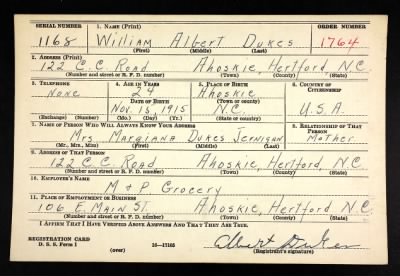 SERIAL NUMBER 1. NAME (Print) ORDER NUMBER
1168 William Albert Dukes 1764
(First) (Middle) (Last)
2. ADDRESS (Print)
122 C.C. Road Ahoskie, Hertford N.C.
(Number and street or R. F. D. number) (Town) (County) (State)
3. TELEPHONE 4. AGE IN YEARS 5. PLACE OF BIRTH 6. COUNTRY OF CITIZENSHIP
None 24 Ahoskie
DATE OF BIRTH (Town or county)
Nov. 15, 1915 N.C. U.S.A.
(Exchange) (Number) (Mo.) (Day) (Yr.) (State or country)
7. NAME OF PERSON WHO WILL ALWAYS KNOW YOUR ADDRESS 8. RELATIONSHIP OF THAT PERSON
Mrs. Margiana Dukes Jernigan Mother
(Mr., Mrs., Miss) (First) (Middle) (Last)
9. ADDRESS OF THAT PERSON
122 C.C. Road Ahoskie, Hertford, N.C.
(Number and street or R. F. D. number) (Town) (County) (State)
10. EMPLOYER'S NAME
M & P Grocery
11. PLACE OF EMPLOYMENT OR BUSINESS
106 E. Main St Ahoskie, Hertford, N.C.
(Number and street or R. F. D. number) (Town) (County) (State)
I AFFIRM THAT I HAVE VERIFIED ABOVE ANSWERS AND THAT THEY ARE TRUE.
REGISTRATION CARD
D. S. S. Form 1 (over) 16-17105 Albert Dukes
(Registrant's signature)